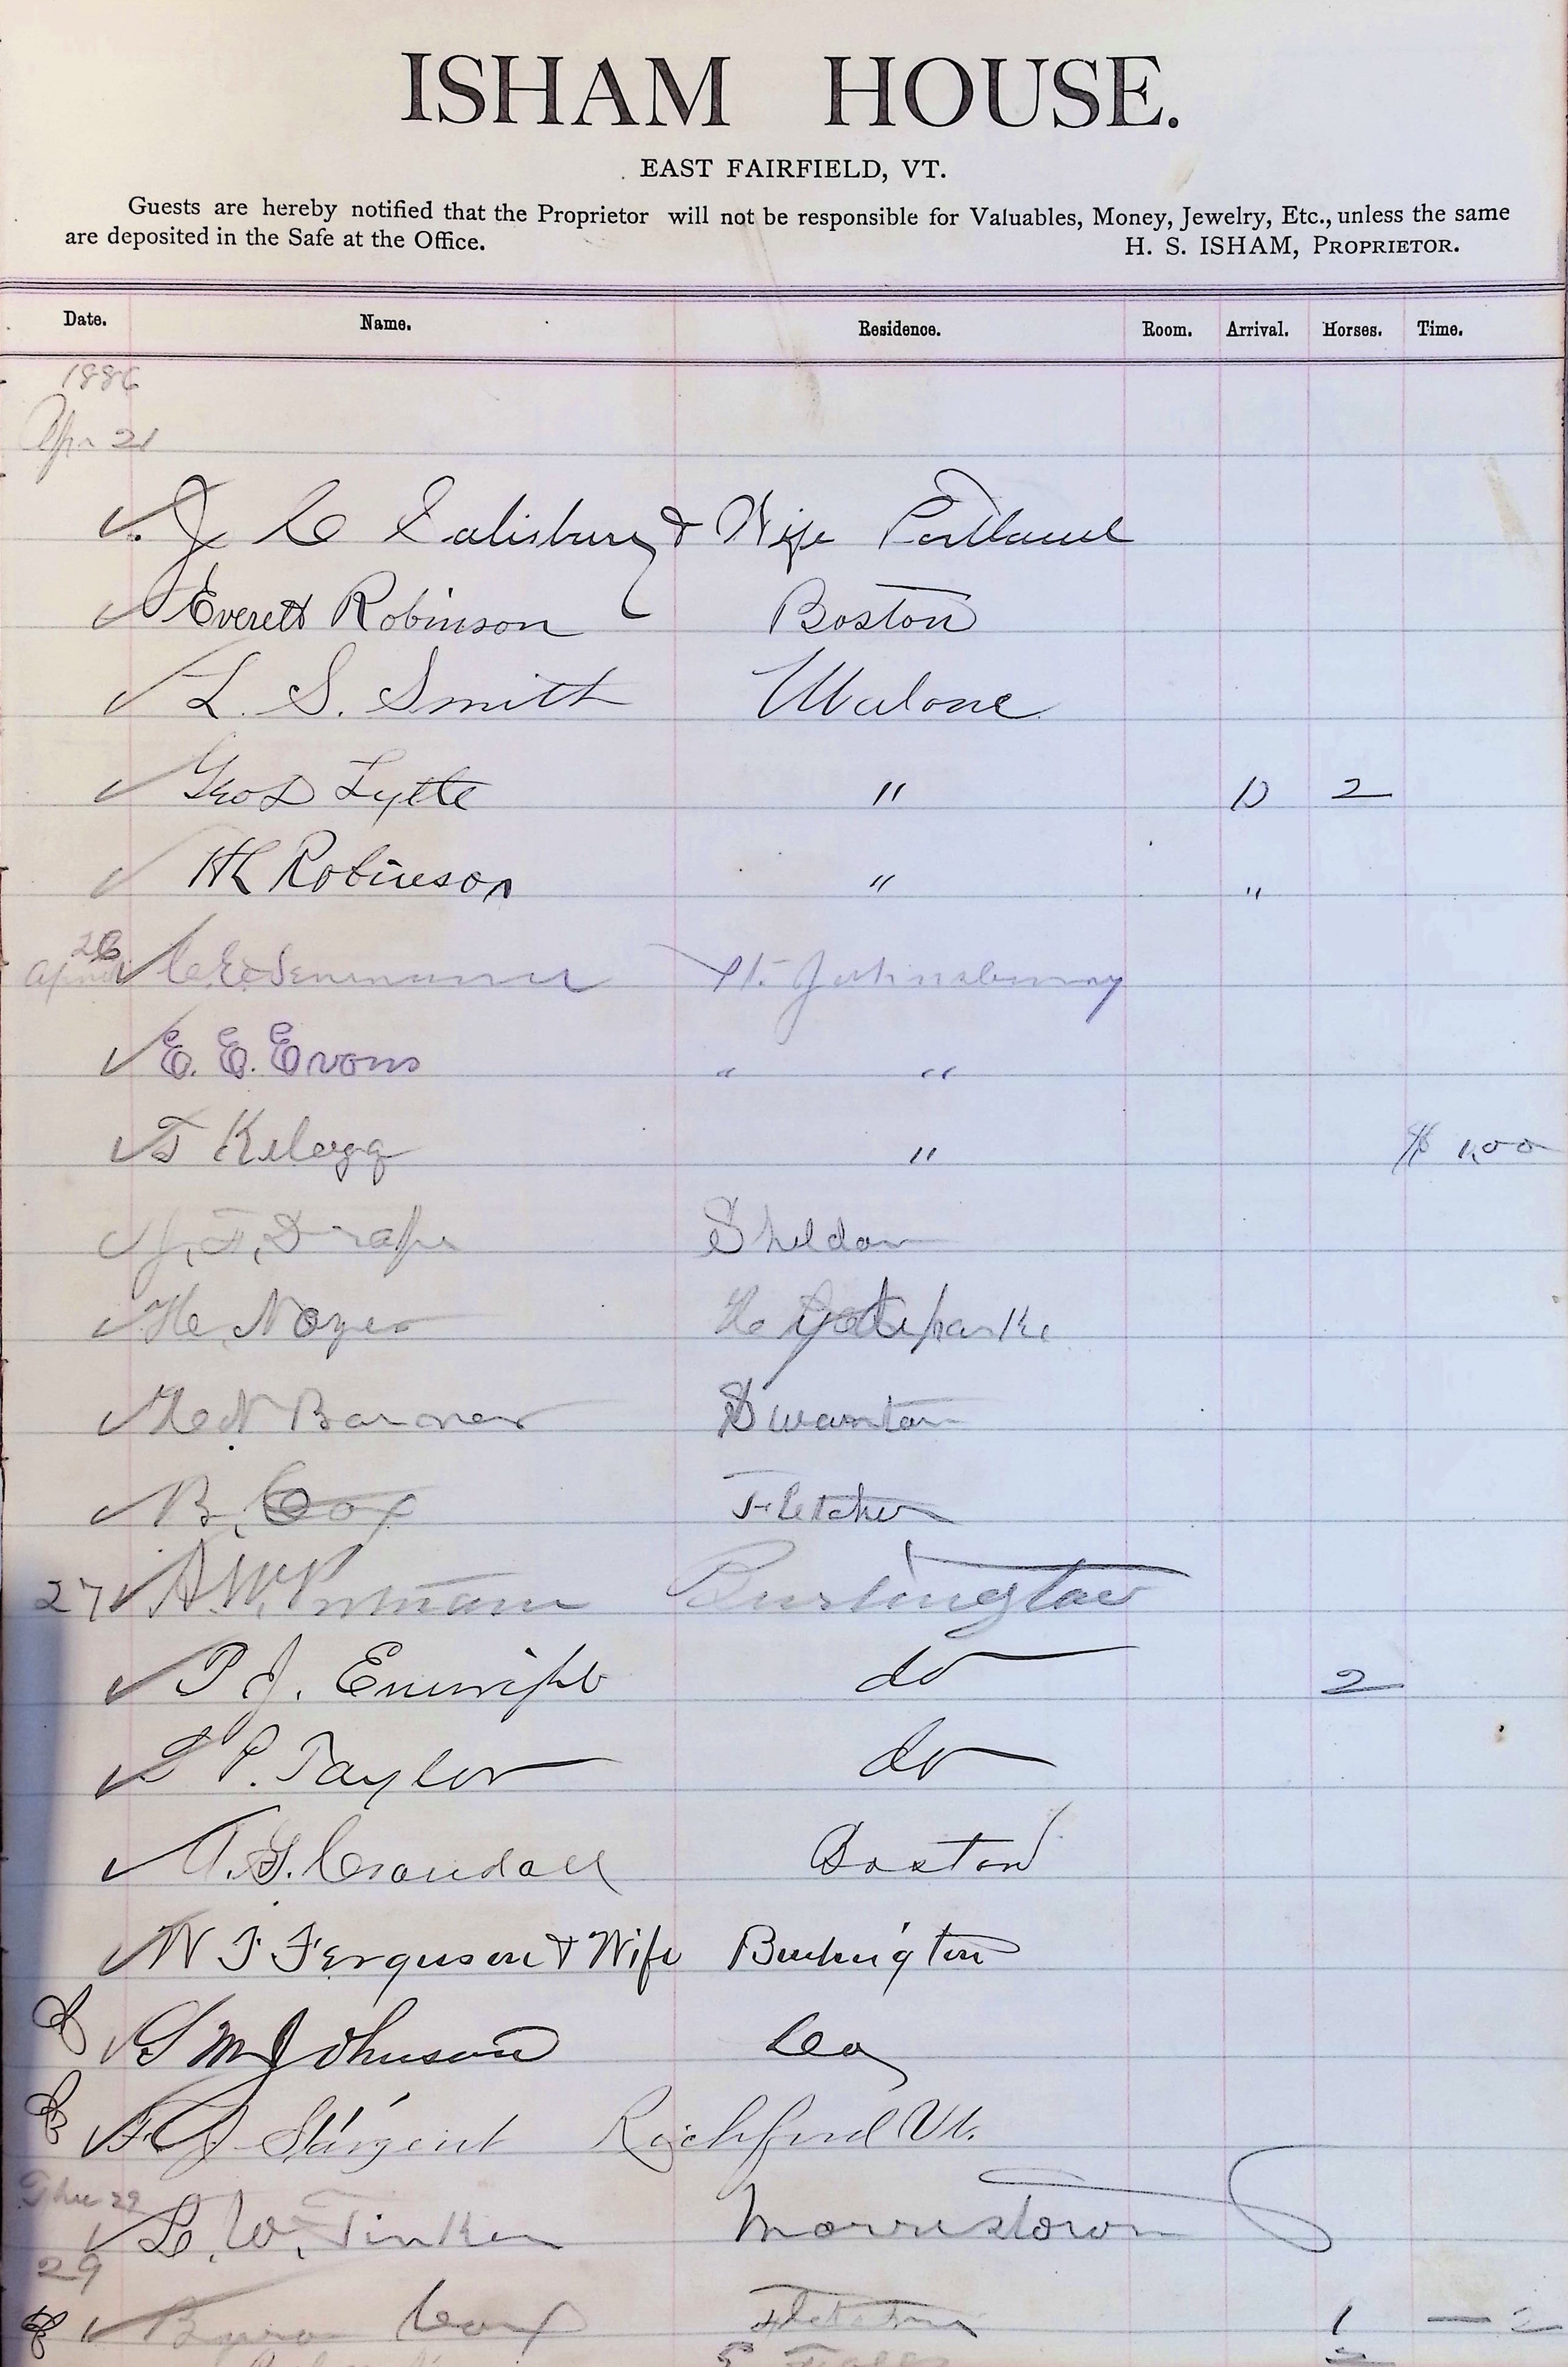 ISHAM HOUSE.
EAST FAIRFIELD, VT.
Guests are hereby notified that the Proprietor will not be responsible for Valuables, Money, Jewelry, Etc., unless the same
are deposited in the Safe at the Office. H. S. ISHAM, PROPRIETOR.
Date. Name. Residence. Room. Arrival. Horses. Time.
1886
Apr 21
J C Salisbury & Wife Portland
Everett Robinson Boston
L. S. Smith Malone
Geo D Lytle " D 2
HL Robinson " "
26
April C. E. St. Johnsbury
E. E. Evans " "
T Kelogg " $ 1,00
J, F, Drape Sheldon
H, Noyes
H N Swanton
B, Cox Fletcher
27 A. W. Putnam Burlington
P J. Enwright do 2
P. Taylor do
Crandall Boston
W F Ferguson & Wife Burlington
G M Johnson
F J Sargent Richford Vt.
Thu 29
L. W. Tinker Morristown
29
Byron Cox Fletcher 1 — 2